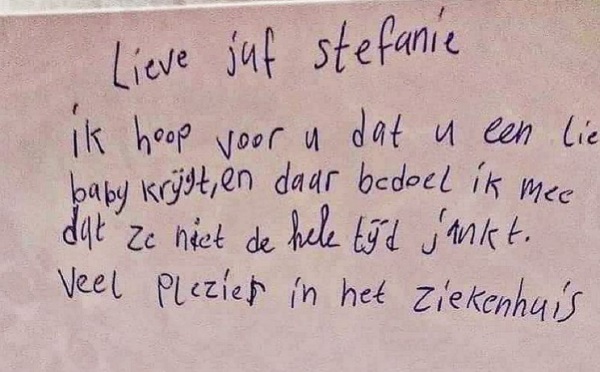 Lieve juf stefanie
ik hoop voor u dat u een lie
baby krijgt, en daar bedoel ik mee
dat ze niet de hele tijd jankt.
Veel plezier in het ziekenhuis